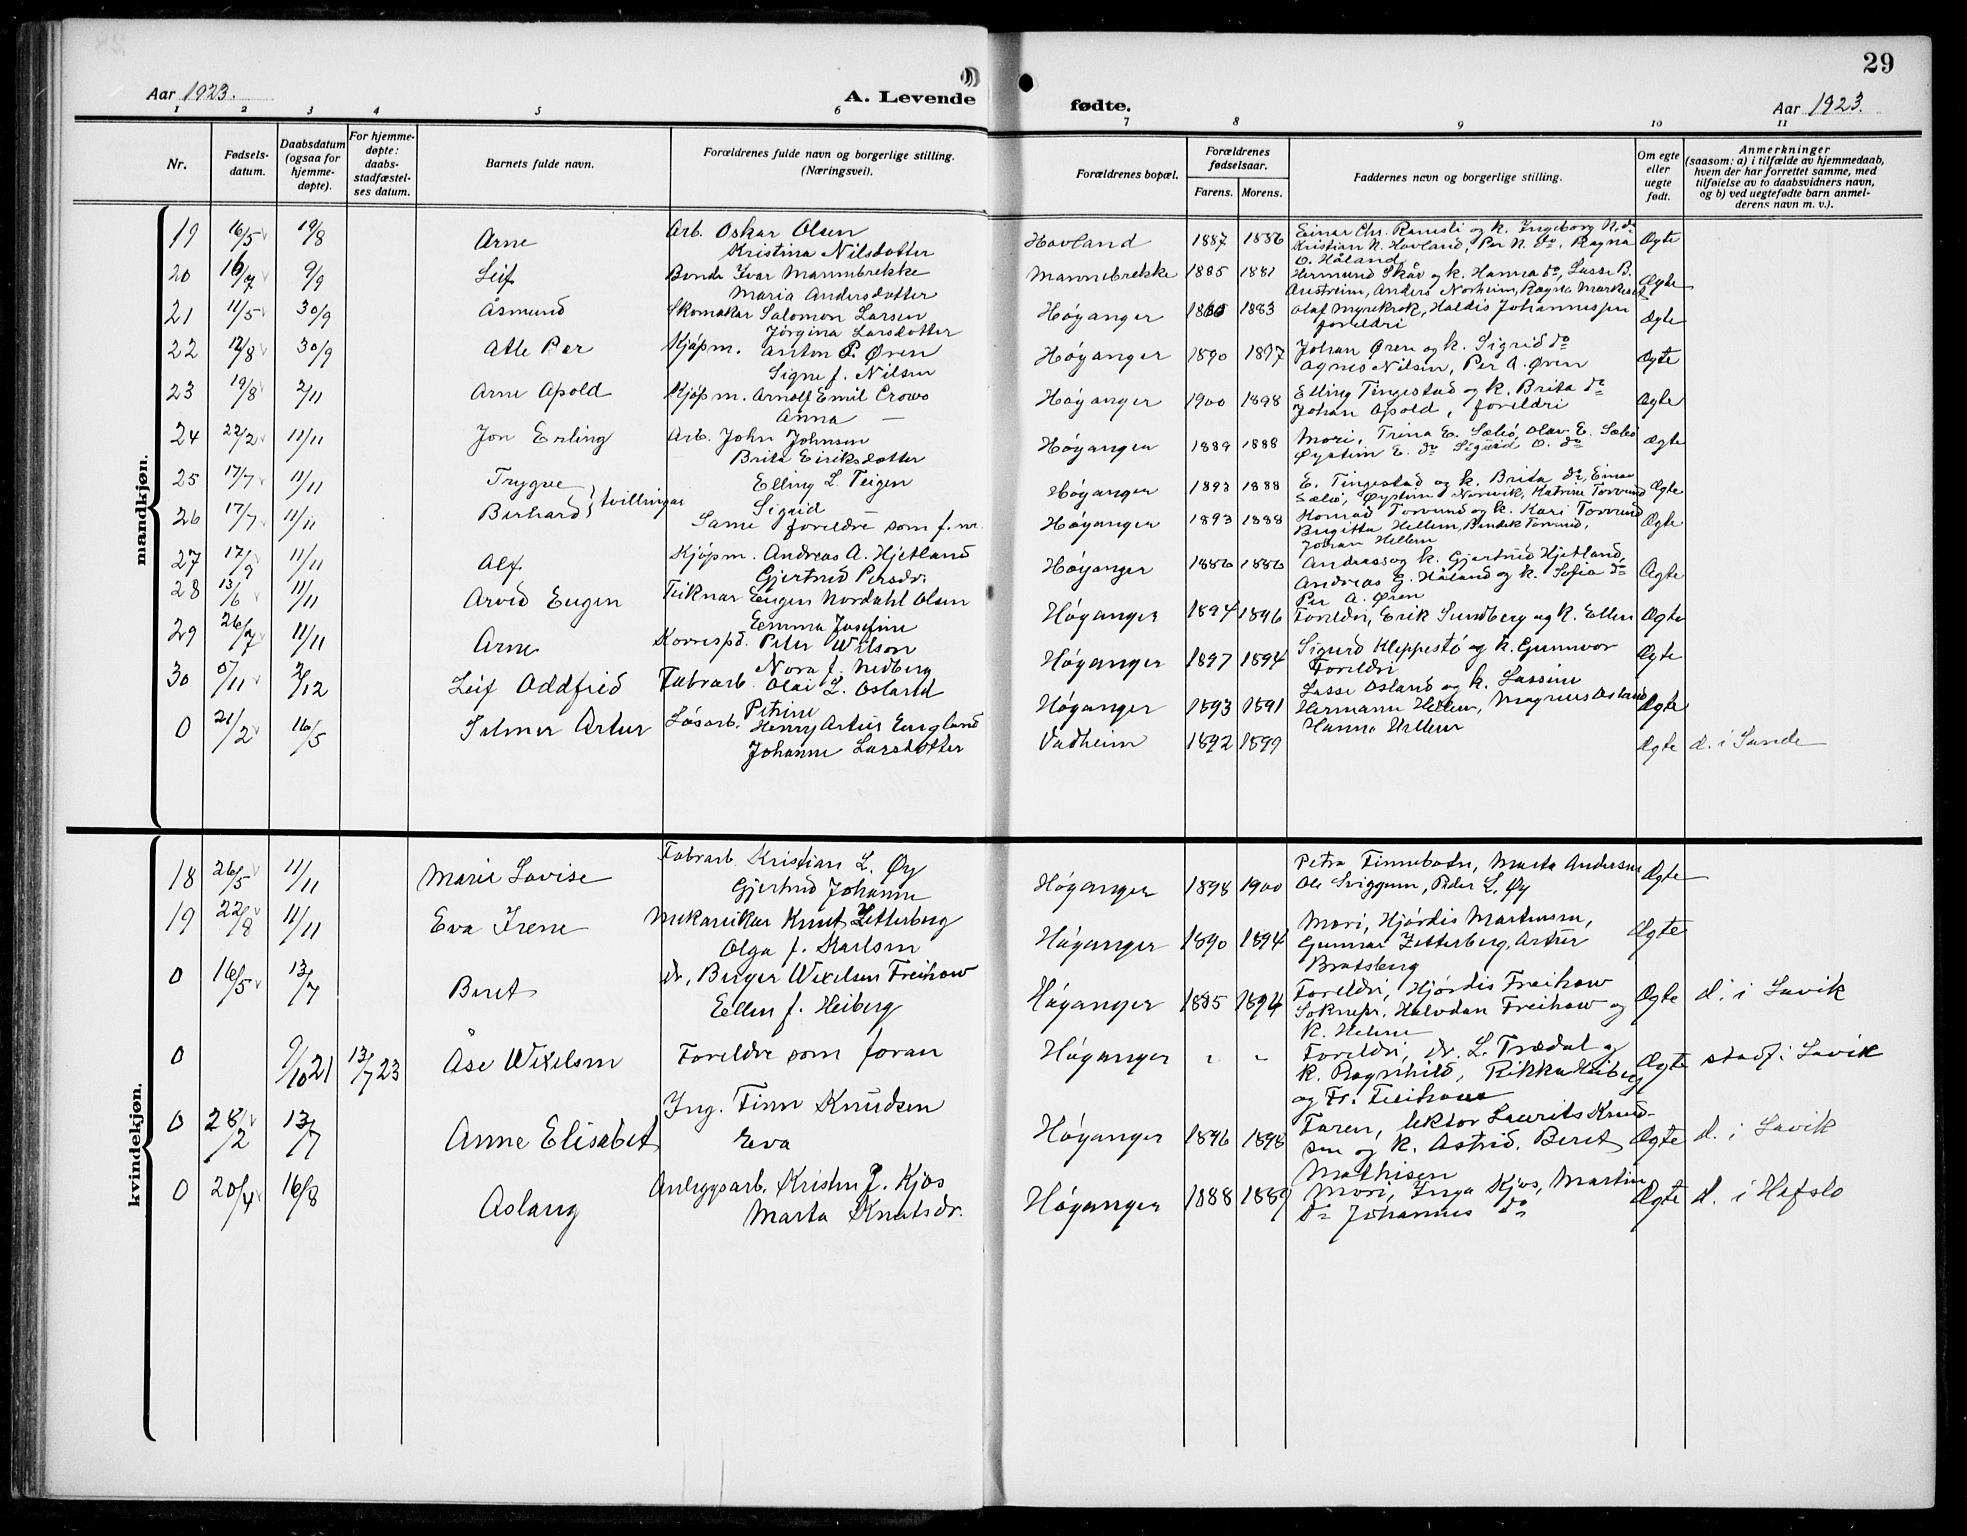 29
Aar 1923.
A. Levende fødte.
Aar 1923.
1 2 3 4 5 6 7 8 9 10 11
Nr.
Fødsels-
datum.
Daabsdatum
(ogsaa for
hjemme-
døpte).
For hjemme-
døpte:
daabs-
stadfæstel-
ses datum.
Barnets fulde navn.
Forældrenes fulde navn og borgerlige stilling.
(Næringsvei).
Forældrenes bopæl.
Forældrenes
fødselsaar.
Farens. Morens.
Faddernes navn og borgerlige stilling.
Om egte
eller
uegte
født.
Anmerkninger
(saasom: a) i tilfælde av hjemmedaab,
hvem der har forrettet samme, med
tilføielse av to daabsvidners navn,
og b) ved uegtefødte barn anmel-
derens navn m. v.).
mandkjøn.
19 16/5 19/8 Arne Arb. Oskar Olsen
Kristina Nilsdotter
Hovland 1887 1886 Einar Chr. Ramsli og k. Ingeborg N. do
Kristian N. Hovland, Per N. do, Ragna
O. Håland
Ægte
20 16/7 9/9 Leif Bonde Ivar Mannbrekke
Maria Andersdotter
Mannebrekke 1885 1881 Hermund Skår og k. Hanna do, Lasse B.
Austreim, Anders Norheim, Ragna
Ægte
21 11/5 30/9 Åsmund Skomakar Salomon Larsen
Jörgina Larsdotter
Høyanger 1883 Olaf Myrekrok, Haldis Johannessen
foreldri
Ægte
22 12/8 30/9 Atle Per Kjøpm. Anton P. Øren
Signe f. Nilsen
Høyanger 1890 1897 Johan Øren og k. Sigrid do
Agnes Nilsen, Per A. Øren
Ægte
23 19/8 2/11 Arne Apold Kjøpm. Arnolf Emil Crowo
Anna —
Høyanger 1900 1898 Elling Tingestad og k. Brita do
Johan Apold, foreldri
Ægte
24 22/2 11/11 Jon Erling Arb. John Johnsen
Brita Eiriksdotter
Høyanger 1889 1888 Mori, Trina E. Sæbö, Olav E. Sæbö
Øystein E. do Sigurd O. do
Ægte
25 17/7 11/11 Trygve Elling L. Teigen
Sigrid
Høyanger 1893 1888 E. Tingestad og k. Brita do, Einar
Sæbö, Øystein Norevik, Katrine Torvund
Ægte
tvillingar
26 17/7 11/11 Berhard Same foreldre som f. nr.
Høyanger 1893 1888 Konrad Torvund og k. Kari Torvund
Birgitta Hellem, Bendik Torvund,
Johan Hellem
Ægte
27 17/9 11/11 Alf Kjøpm. Andreas A. Hjetland
Gjertrud Persdr.
Høyanger 1886 1886 Andreas og k. Gjertrud Hjetland,
Andreas G. Håland og k. Sofia do
Per A. Øren
Ægte
28 13/6 11/11 Arvid Eugen Teiknar Eugen Nordahl Olsen
Emma Josefine
Høyanger 1894 1896 Foreldri, Erik Sundberg og k. Ellen Ægte
29 26/7 11/11 Arne Korrespd. Peter Wilson
Nora f. Nedberg
Høyanger 1897 1894 Sigurd Kleppestö og k. Gunnvor
Foreldri
Ægte
30 5/11 2/12 Leif Oddfrid Fabrarb. Olai L. Osland
Petrine
Høyanger 1893 1891 Lasse Osland og k. Lassine
Hermann Hellem, Magnus Osland
Hanna Hellem
Ægte
0 21/2 16/5 Selmer Artur Løsarb. Henry Artur England
Johanne Larsdotter
Vadheim 1892 1899 Ægte d. i Sande
kvindekjøn.
18 26/5 11/11 Marie Lovise Fabrarb. Kristian L. Øy
Gjertrud Johanne
Høyanger 1898 1900 Petra Finnebotn, Marta Andersen
Ole Sviggum, Peder L. Øy
Ægte
19 22/8 11/11 Eva Irene Mekanikar Knut Zetterberg
Olga f. Karlsen
Høyanger 1890 1894 Mori, Hjördis Martinsen,
Gunnar Zetterberg, Artur
Bratsberg
Ægte
0 16/5 13/7 Beret Dr. Birger Wexelsen Freihow
Ellen f. Heiberg
Høyanger 1885 1894 Foreldri, Hjørdis Freihow
Soknepr. Halvdan Freihow og
k. Helene
Ægte d. i Lavik
0 9/10 21 13/7 23 Åse Wexelsen Foreldre som foran
Høyanger - - Foreldri, dr. L. Trædal og
k. Ragnhild, Rikka Heiberg
og Fr. Freihow
Ægte stadf. i Lavik
0 28/2 13/7 Anne Elisabet Ing. Finn Knudsen
Eva
Høyanger 1896 1898 Faren, lektor Laurits Knud-
sen og k. Astrid, Beret
Mathisen
Ægte d. i Lavik
0 20/4 16/8 Aslaug Anleggsarb. Kristen P. Kjos
Marta Knutsdr.
Høyanger 1888 1889 Mori, Inga Kjos, Martin
do Johannes do
Ægte d. i Hafslo